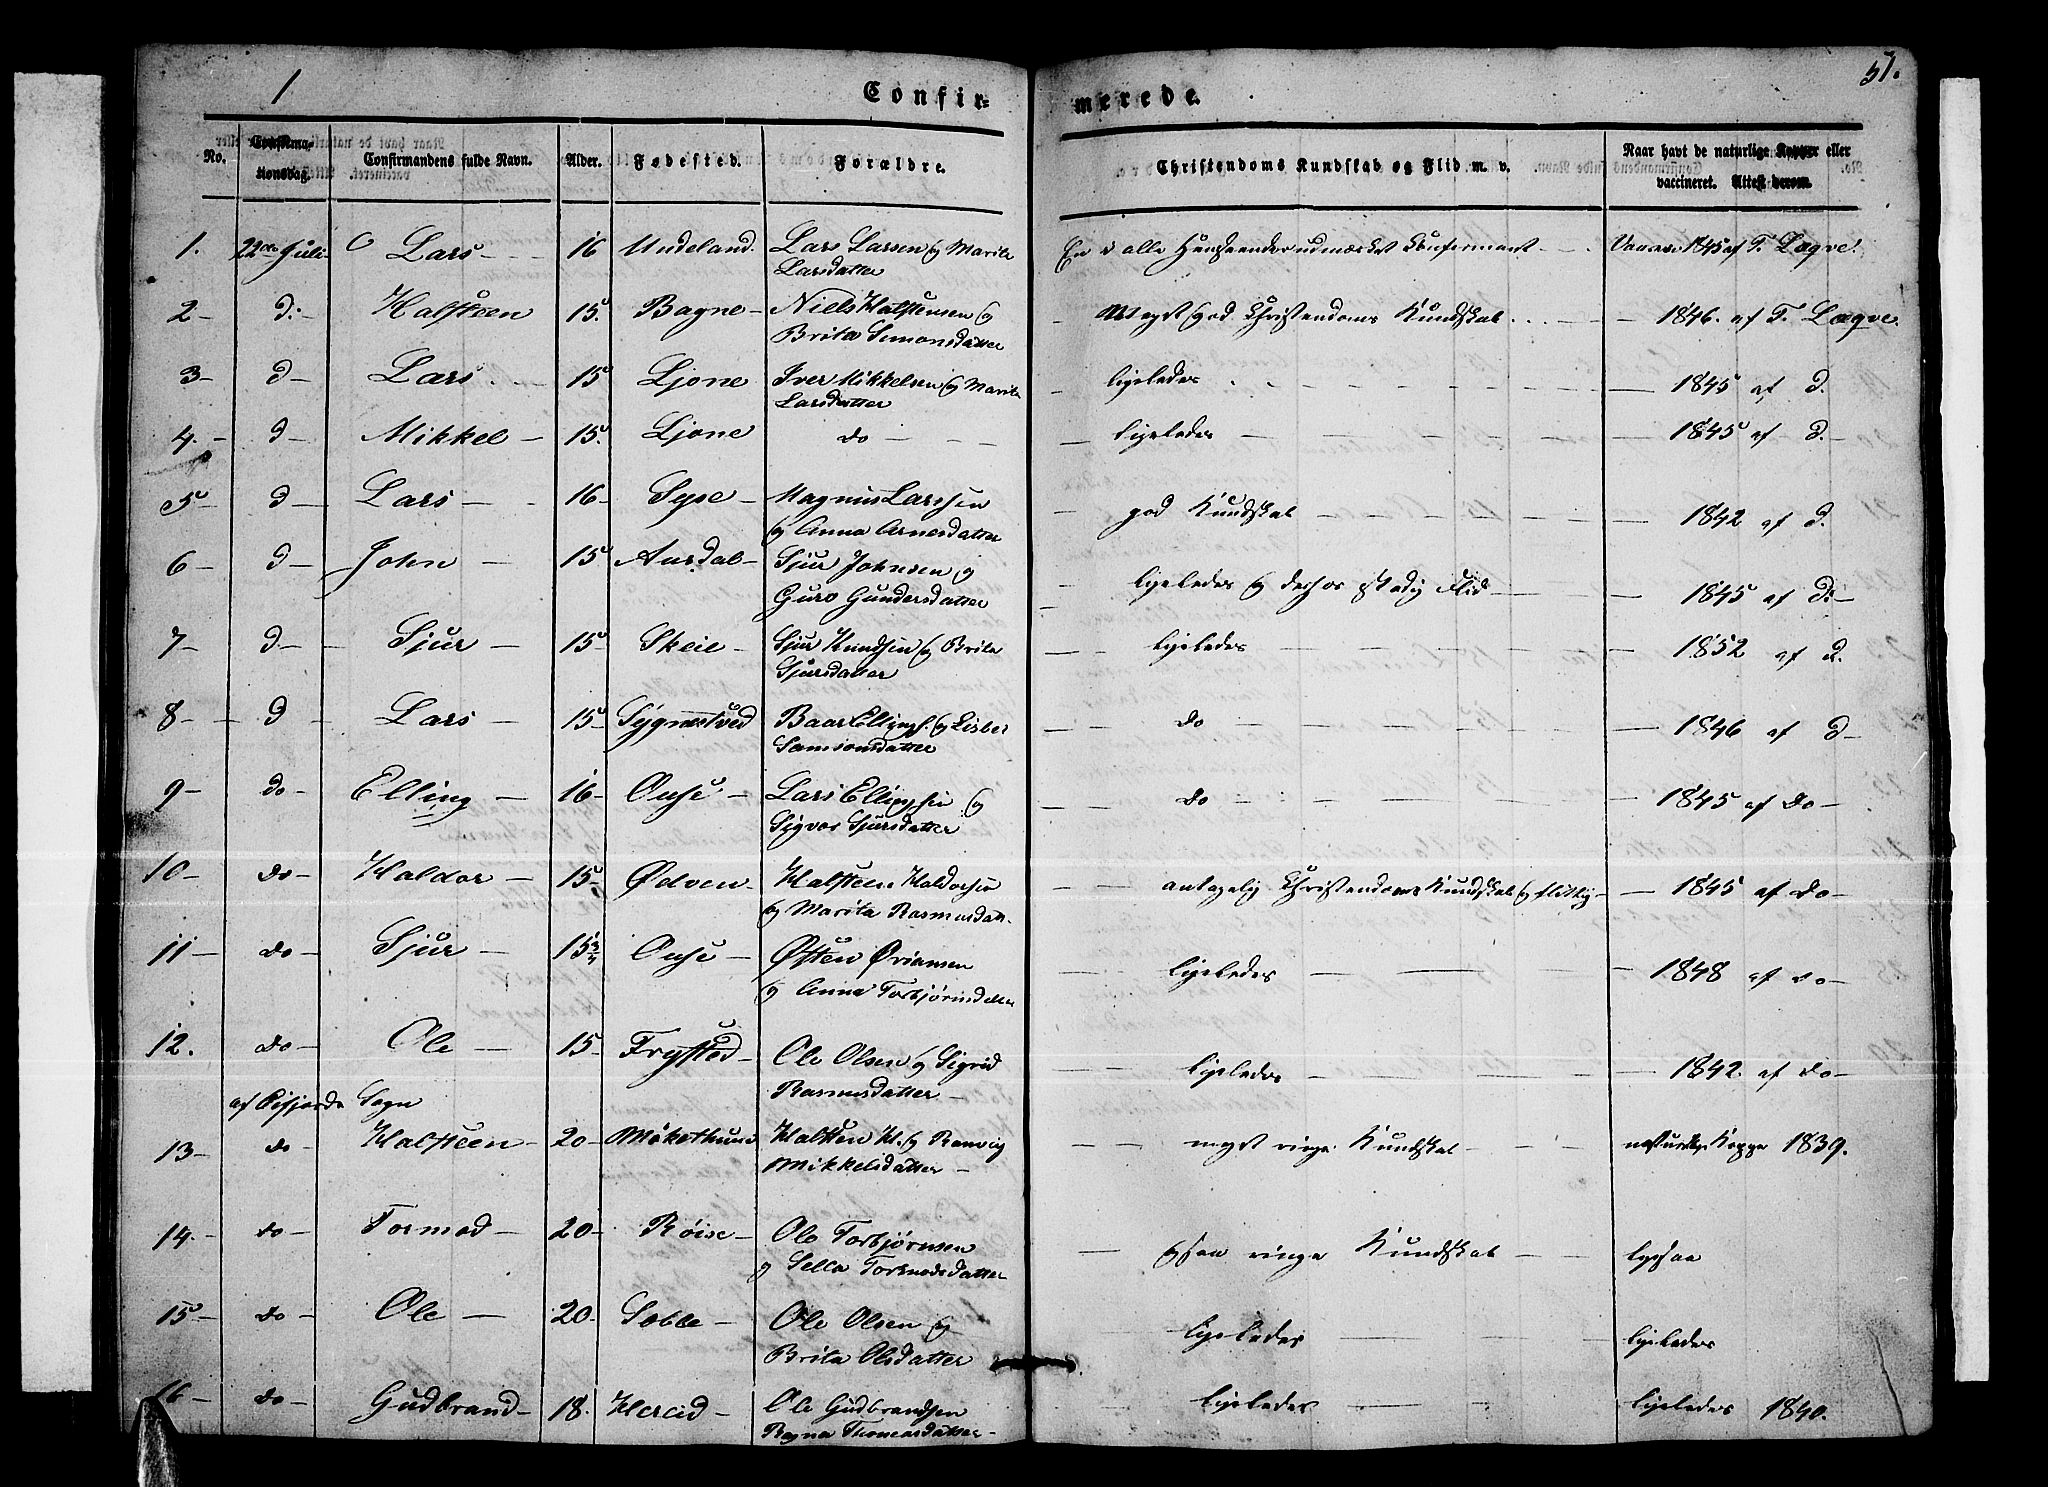 1
57.
Confir=
merede.
No.
Confirma-
tionsdag.
Confirmandens fulde Navn.
Alder.
Fødested.
Forældre.
Christendoms Kundskab og Flid m. v.
Naar havt de naturlige Kopper eller
vaccineret. Attest derom.
1. 22de Juli Lars 16 Undeland. Lars Larsen og Marite En i alle Henseender udmærket Confirmant 1845 af T. Lægve.
Larsdatter
2 d: Halsteen 15. Bagne Niels Halstensen og Meget god Christendoms Kundskab 1846. af T. Lægve.
Brita Simonsdatter
3 d Lars 15 Ljone Iver Mikkelsen og Marite ligeledes 1845 af d.
Larsdatter
4. d Mikkel 15. Ljone do ligeledes 1845 af d.
5 d Lars 16 Syse Magnus Larssen god Kundskab 1842 af d.
og Anna Arnesdatter
6 d John 15 Aursdal Sjur Johnsen og ligeledes og derhos stadig Flid 1845 af d:
Guro Gundersdatter
7 d Sjur 15 Skeie Sjur Knudsen og Brita ligeledes 1852 af d.
Sjursdatter
8 d Lars 15 Sygnestved Baar Ellings. og Lisbet do 1846 af d
Samsonsdatter
9 do Elling 16 Ouse Lars Ellingsen og do 1845 af do
Sigvor Sjursdatter
10 do Haldor 15 Ødven Halsteen Haldorsen antagelig Christendoms Kundskab og flittig 1845 af do
og Marita Rasmusdatt.
11 do Sjur 15 3/4 Ouse Østen Øriansen ligeledes 1848 af do
og Anna Torbjørnsdatter
12. do Ole 15 Trysted Ole Olsen og Sigrid ligeledes 1842. af do
Rasmusdatter
af Eifjords Sogn
13 do Halsteen 20 Møkethuns Halsten H. og Ranvig meget ringe Kundskab naturlige Kopper 1839.
Mikkelsdatter
14. do Tormod 20 Røise Ole Torbjørnsen ogsaa ringe Kundskab ligesaa
og Sella Tormodsdatter
15 do Ole 20 Sæbbe Ole Olsen og ligeledes ligeledes
Brita Olsdatter
16 do Gudbrand 18. Hereid Ole Gudbrandsen ligeledes ligeledes 1840.
Ragna Thomasdatter